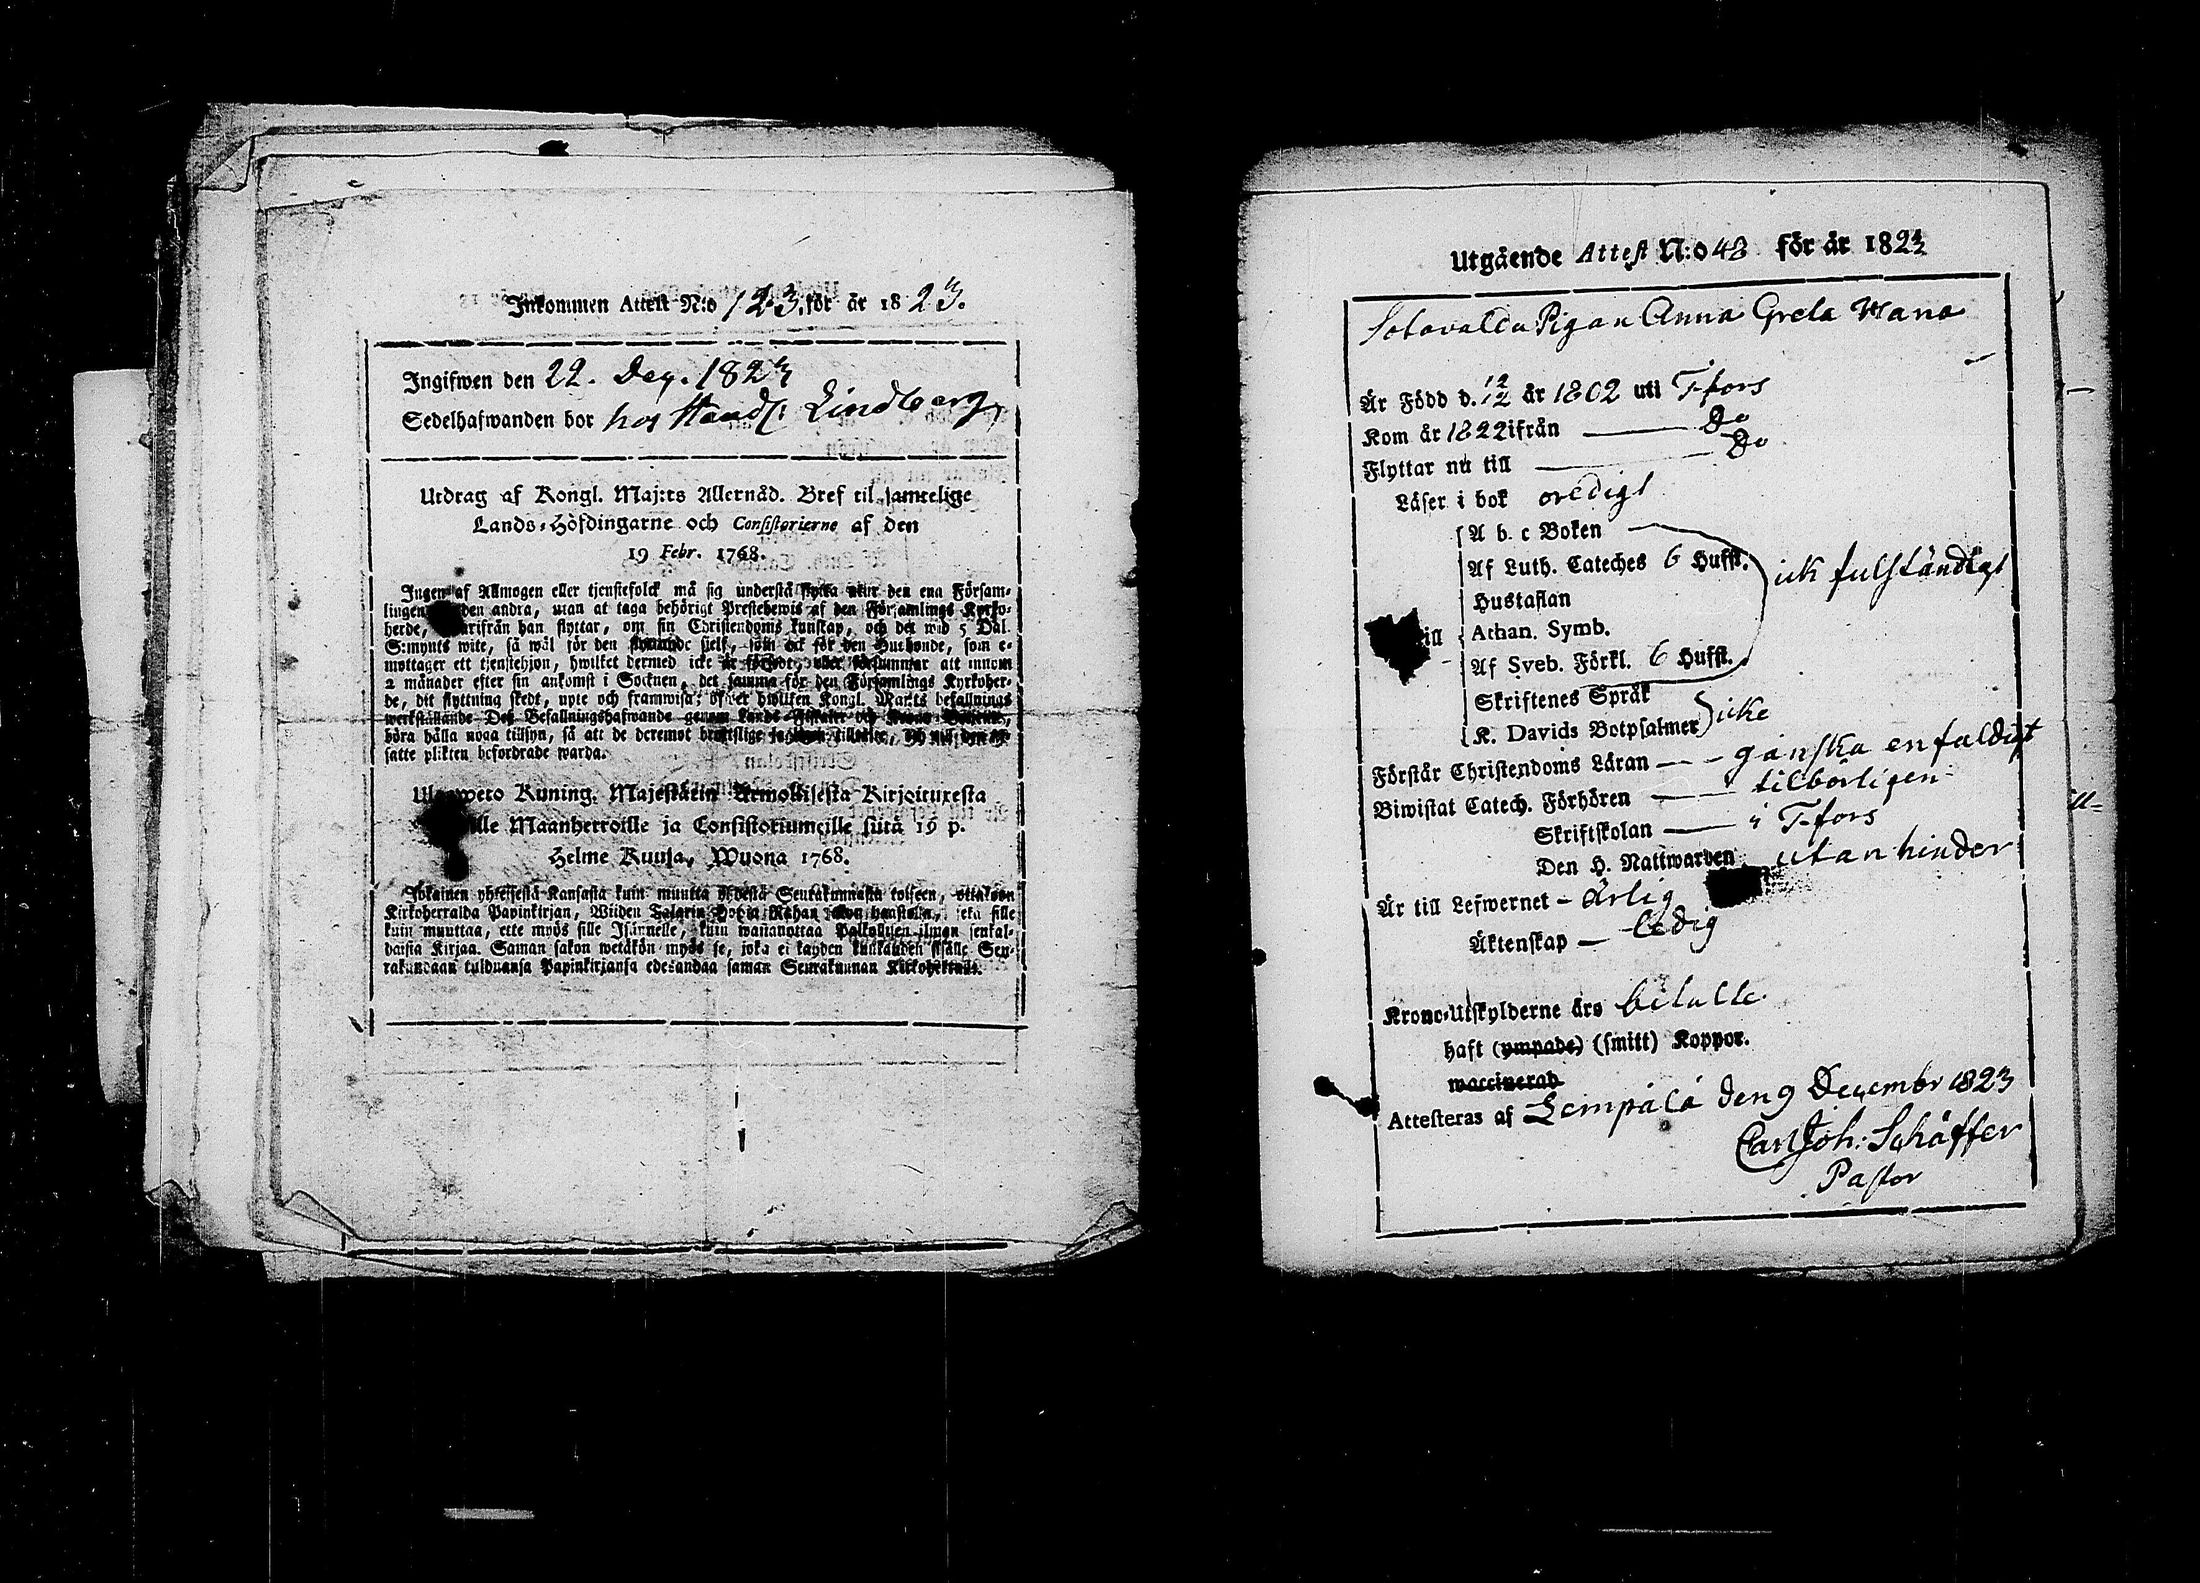 Inkommen Attest N:o 123. för år 1823.
Ingifwen den 22. Dec. 1823
Sedelhafwanden bor hos Handl: Lindberg
Utdrag af Kongl. Maj:ts Allernåd. Bref til samtelige
Lands-Höfdingarne och Consistorierne af den
19 Febr. 1768.
Ingen af Allmogen eller tjenstefolck må sig understå flytta utur den ena Försam-
lingen den andra, utan at taga behörigt Prestebewis af den Församlings Kyrko-
herde, hwarifrån han flyttar, om sin Christendoms kunskap, och det wid 5 Dal.
S:mynts wite, så wäl för den flyttande sielf, som ock för den Husbonde, som e-
mottager ett tjenstehjon, hwilket dermed icke är försedt, eller försummar att innom
2 månader efter sin ankomst i Socknen, det samma för den Församlings Kyrkoher-
de, dit flyttning skedt, upte och framwisa; öfwer hwilken Kongl. Maj:ts befallnings
werkställande Des Befallningshafwande genom Lands-Fiskaler och Krono-Betiente,
böra hålla noga tillsyn, så att de deremot brottslige
satte plikten befordrade warda.
Kuning. Majestätin Armollisesta Kirjoituxesta
Maanherroille ja Consistoriumeille siitä 19 p.
Helme Kuusa, Wuona 1768.
Jokainen yhteisestä Kansasta kuin muutta yhdestä Seurakunnasta toiseen, ottakoon
Kirkoherralda Papinkirjan, Wiiden Talarin Hopia Rahan sakon haastolla, sekä sille
kuin muuttaa, ette myös sille Isännelle, kuin wastanottaa Palkollisen ilman senkal-
daista Kirjaa. Saman sakon wetäkön myös se, joka ei kahden kuukauden sisälle Seu-
rakundaan tulduansa Papinkirjansa edesandaa saman Seurakunnan Kirkoherralle.
Utgående Attest N:o 48 för år 182
Pigan Anna Greta
Är Född d. 12/12 år 1802 uti T-fors
Kom år 1822 ifrån — Do
Flyttar nu till — Do
Läser i bok oredigt
A b c Boken
Af Luth. Cateches 6 Hufst. ick fulständigt
Hustaflan
Athan. Symb.
Af Sveb. Förkl. 6 Hufst.
Skriftenes Språk
K. Davids Botpsalmer icke
Förstår Christendoms Läran — ganska enfaldigt
Biwistat Catech. Förhören — tilbörligen
Skriftskolan — i T-fors
Den H. Nattwarden utan hinder
Är till Lefwernet — ärlig
Äktenskap — ledig
Krono-Utskylderne äro betalte
haft (ympade) (smitt) Koppor.
waccinerad
Attesteras af Lempälä den 9 Decembr 1823
Carl Joh: Schäffer
Pastor